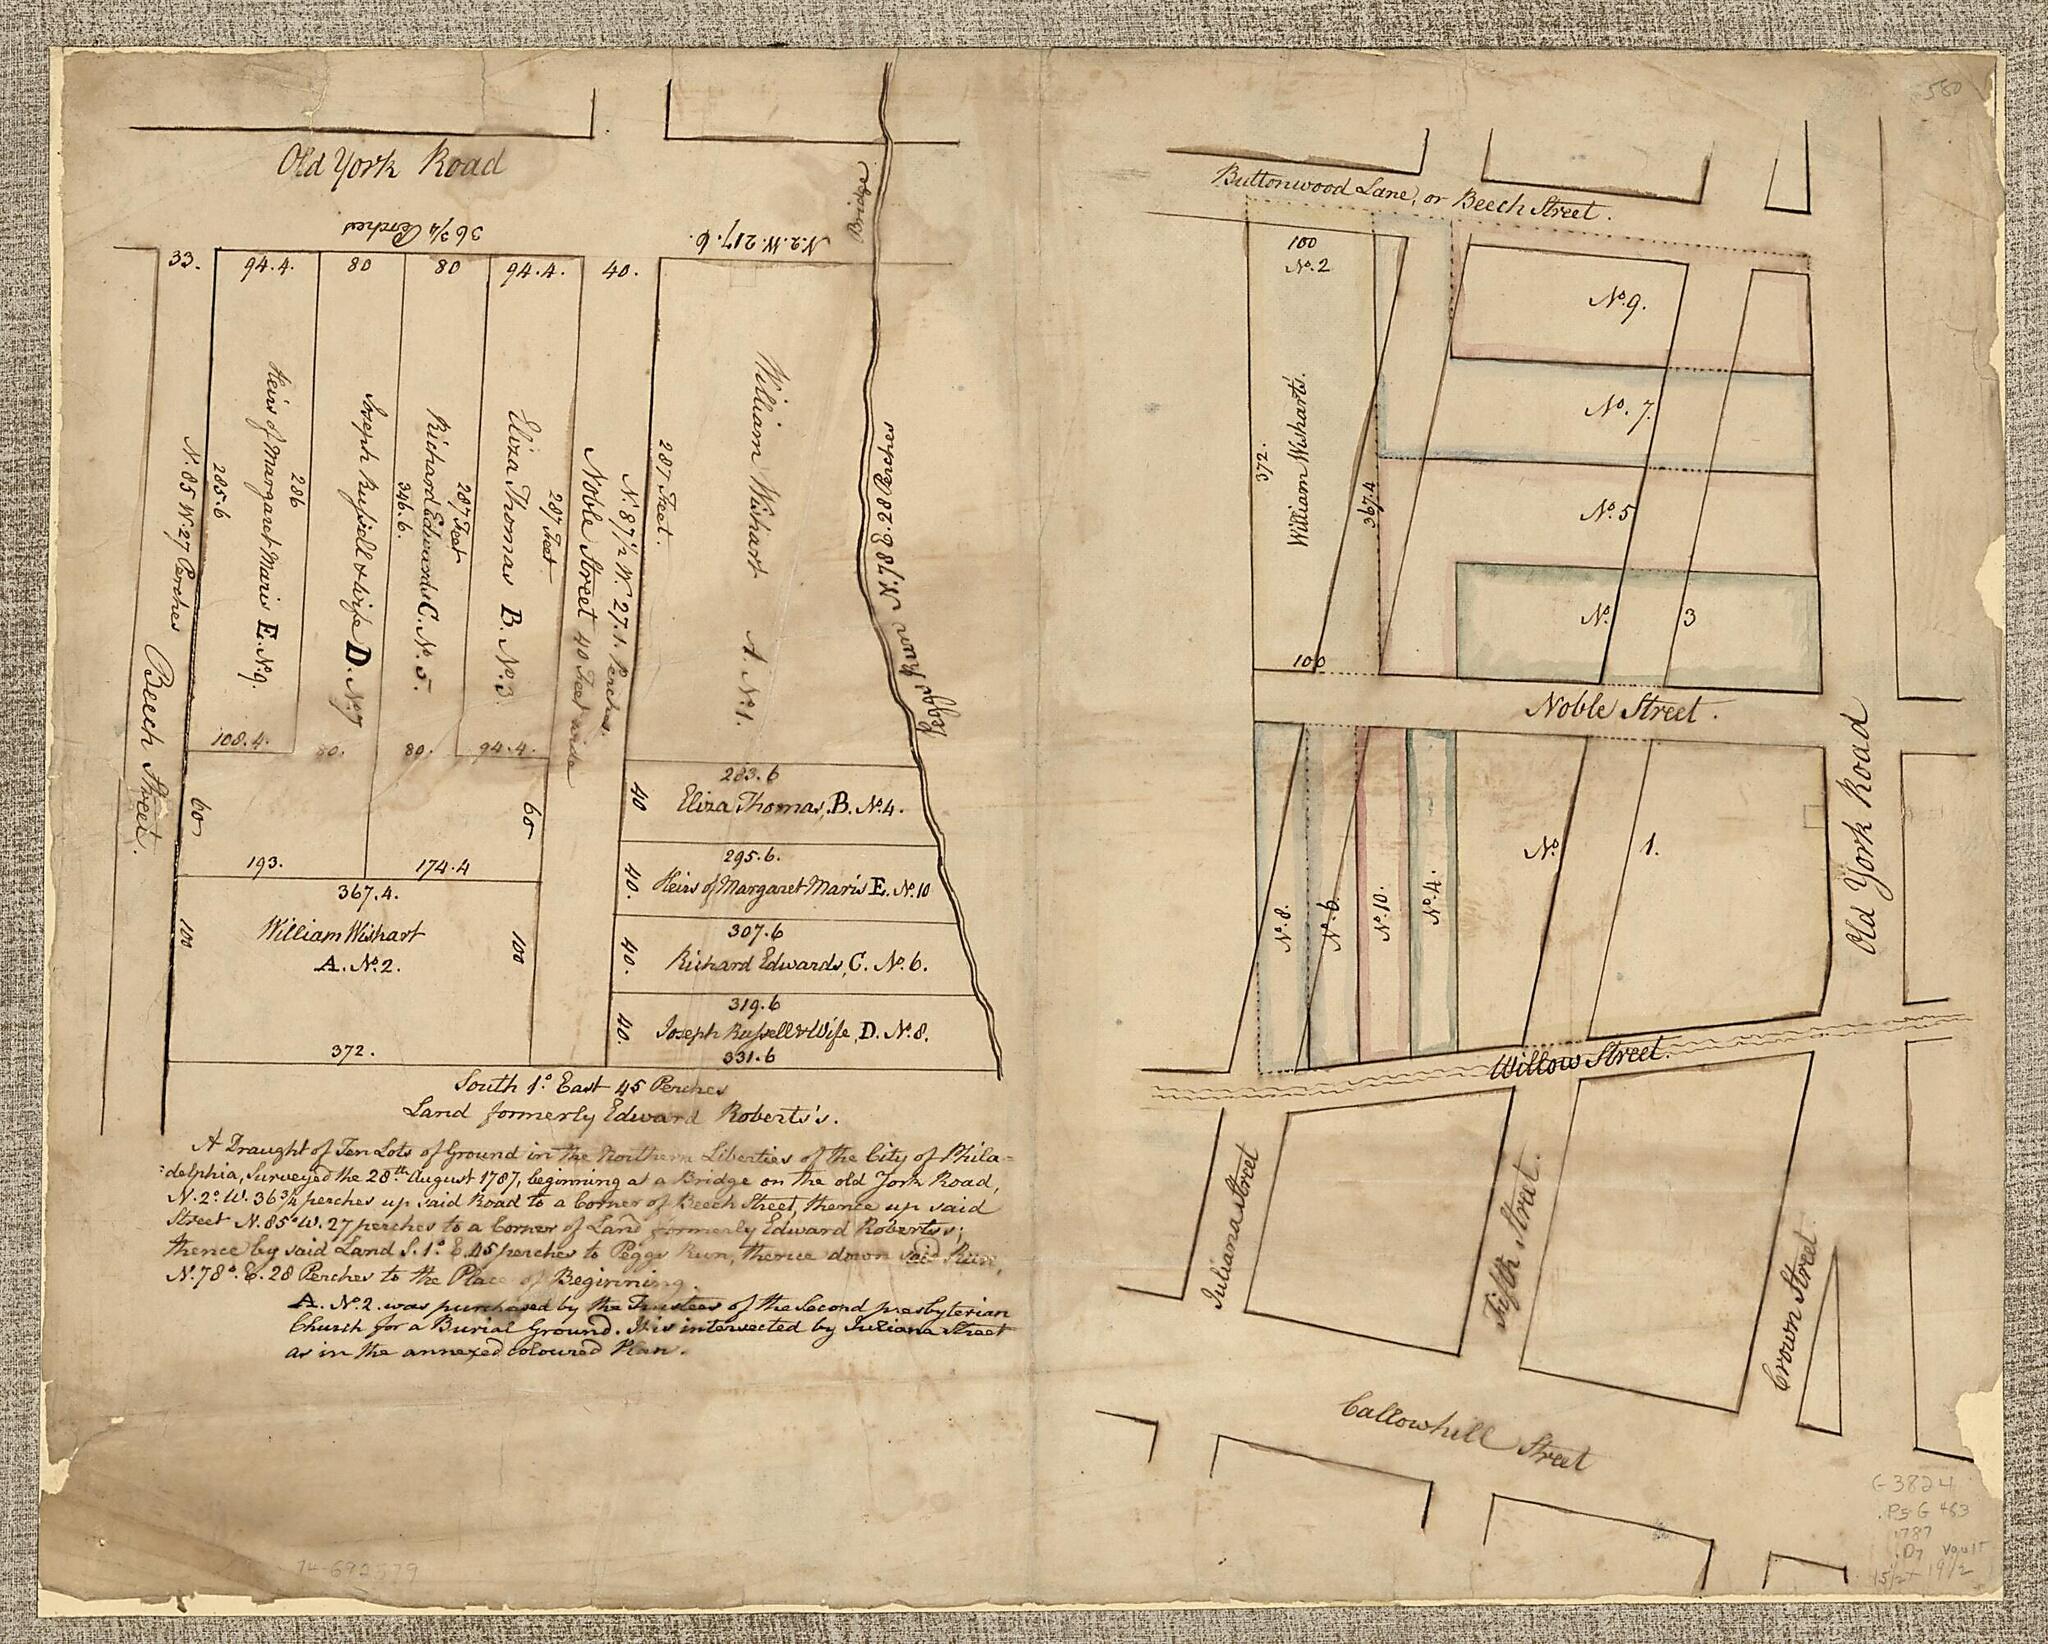 Old York Road
36 3/4 Perches
N.2.W. 217.6.
Bridge
33.
94.4.
80
80
94.4.
40.
N. 85 W. 27 Perches
285.6
Heirs of Margaret Maris E. No. 9.
286
Joseph Russell & Wife D. No. 7
346.6.
Richard Edwards C. No. 5.
287 Feet
Eliza Thomas B. No. 3
287 Feet
Noble Street 40 Feet wide
N. 87 1/2 W. 27.1. Perches.
287 Feet.
William Wishart A. No. 1.
N. 78 E. 28 Perches
Peggs Run
Beech Street.
108.4.
80.
80.
94.4.
60
60
193.
174.4
367.4.
William Wishart
A. No. 2.
100
100
372.
283.6
40
Eliza Thomas, B. No. 4.
295.6.
40.
Heirs of Margaret Maris E. No. 10
307.6
40.
Richard Edwards, C. No. 6.
319.6
40.
Joseph Russell & Wife, D. No. 8.
331.6
South 1.° East 45 Perches
Land formerly Edward Roberts's.
A Draught of Ten Lots of Ground in the Northern Liberties of the City of Phila=
=delphia, Surveyed the 28th August 1787, beginning at a Bridge on the old York Road,
N. 2° W. 36 3/4 perches up said Road to a Corner of Beech Street, thence up said
Street N. 85° W. 27 perches to a Corner of Land formerly Edward Roberts's;
thence by said Land S. 1° E. 45 perches to Peggs Run, thence down said Run,
N. 78° E. 28 Perches to the Place of Beginning.
A. No. 2. was purchased by the Trustees of the Second presbyterian
Church for a Burial Ground. It is intersected by Juliana Street
as in the annexed coloured Plan.
74-692579
580
Buttonwood Lane, or Beech Street.
100
No. 2
372.
William Wishart's.
367.4
100
No. 9.
No. 7.
No. 5
No. 3
Noble Street.
No. 8.
No. 6.
No. 10.
No. 4.
No. 1.
Old York Road
Willow Street.
Juliana Street
Fifth Street.
Crown Street.
Callowhill Street
G 3824
.P5 G 463
1787
.D7 Vault
15 1/2 x 19 1/2